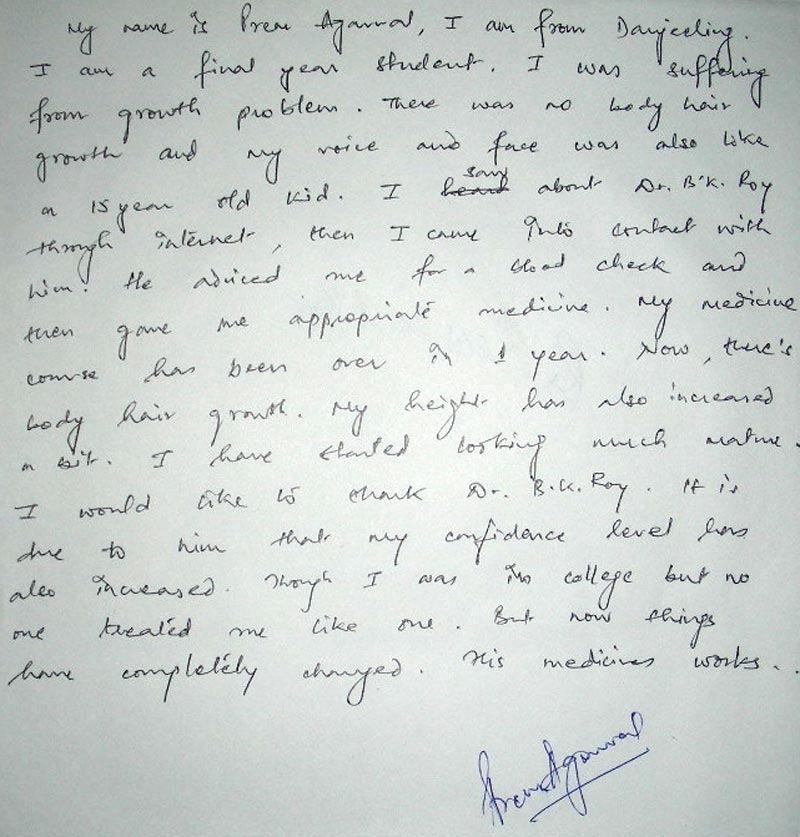 My name is Prem Agarwal, I am from Darjeeling.
I am a final year student. I was suffering
from growth problem. There was no body hair
growth and my voice and face was also like
a 15 year old kid. I heard saw about Dr. B.K. Roy
through internet, then I came into contact with
him. He adviced me for a blood check and
then gave me appropriate medicine. My medicine
course has been over in 1 year. Now, there's
body hair growth. My height has also increased
a bit. I have started looking much mature.
I would like to thank Dr. B.K. Roy. It is
due to him that my confidence level has
also increased. Though I was in college but no
one treated me like one. But now things
have completely changed. His medicines works..
Prem Agarwal